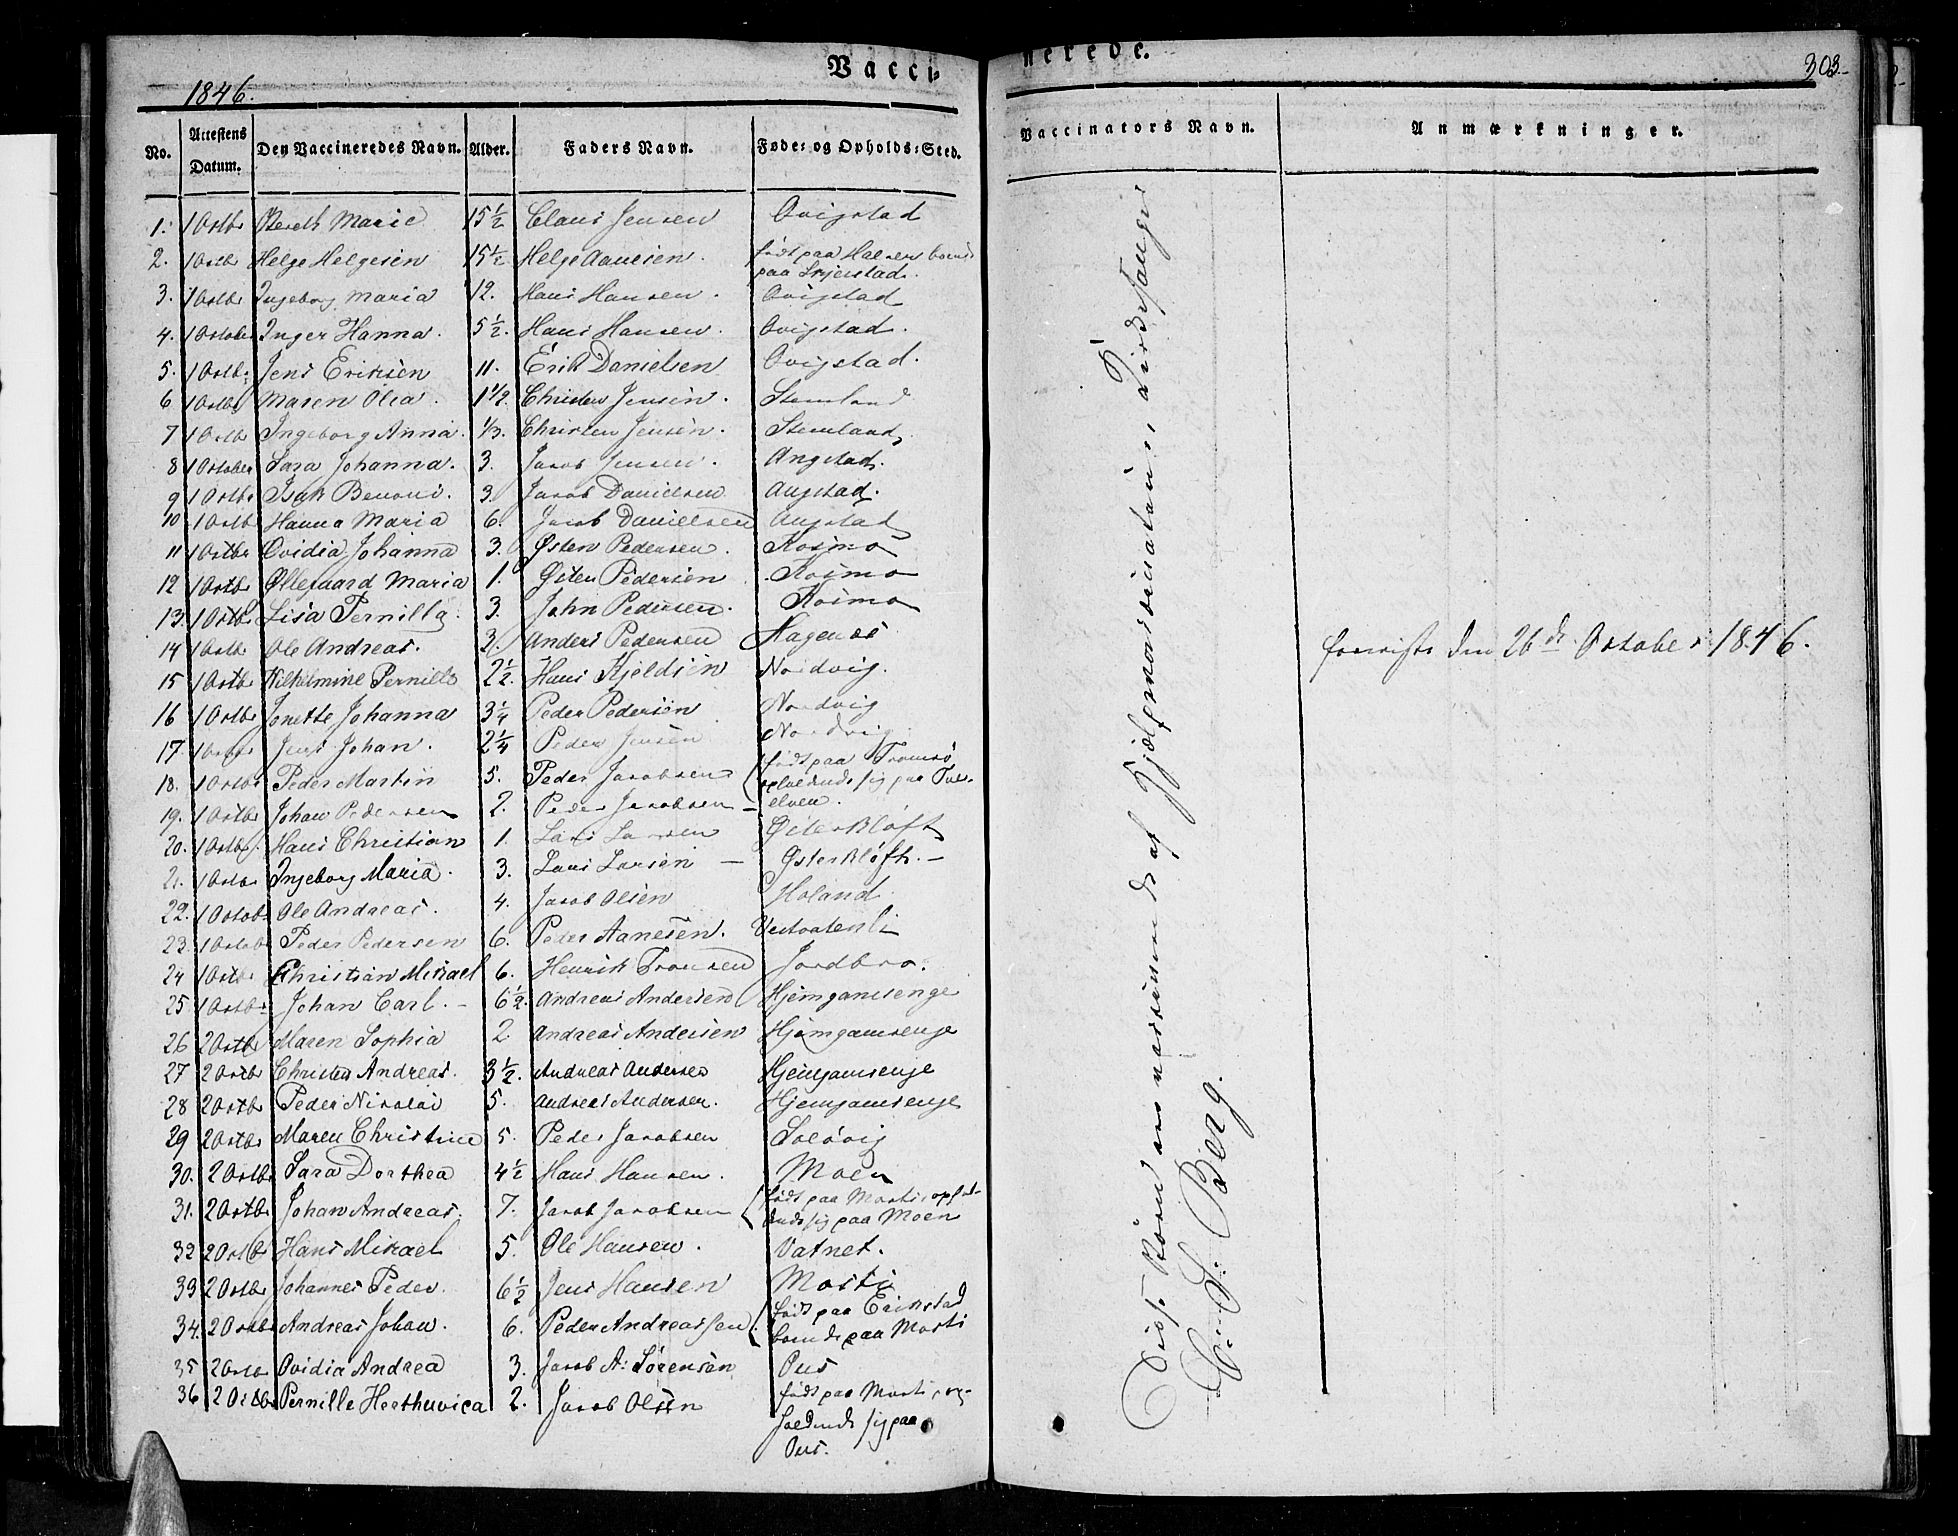 Vacci-
nerede.
303
1846.
No. Attestens Datum. Den Vaccineredes Navn. Alder. Faders Navn. Føde- og Opholds-Sted. Vaccinators Navn. Anmærkninger.
1. 1 Octbr Bereth Marie 15½ Claus Jensen Qvigstad
2. 1 Octbr Helge Helgesen 15½ Helge Aanesen. født paa
paa Skjerstad.
3. 1 Octbr Ingeborg Maria 12. Hans Hansen. Qvigstad
4. 1 October Inger Hanna. 5½. Hans Hansen. Qvigstad.
5. 1 Octbr Jens Eriksen 11. Erik Danielsen Qvigstad.
6 1 Octbr Maren Olea. 1½. Christen Jensen. Stemland
7 1 Octb Ingeborg Anna. ⅓. Christen Jensen. Stemland,
8 1 October Sara Johanna. 3. Jacob Jensen. Angstad.
9 1 Octbr Isak Benoni. 3. Jacob Danielsen Angstad.
10 1 Octbr Hanna Maria 6. Jacob Danielsen Angstad
11 1 Octbr Ovidia Johanna 3. Østen Pedersen. Kosmo
12 1 Octbr Øllegaard Maria 1. Østen Pedersen. Kosmo
13. 1 Octbr Lisa Pernilla. 3. John Pedersen. Kosmo
14 1 Octb Ole Andreas. 2. Anders Pedersen Hagenes
15 1 Octbr Vilhelmine Pernille 2½. Hans Kjeldsen Nordvig.
16 1 Octbr Jonette Johanna 3¼ Peder Pedersen Nordvig
17 1 Octbr Jens Johan. 2¼ Peder Jensen Nordvig
18. 1 Octbr Peder Martin 5. Peder Jacobsen født paa Tromsø
sig paa
elven.
19. 1 Octbr Johan Pedersen 2. Peder Jacobsen –
20. 1 Octbr. Hans Christian 1. Lars Larsen Østerkløft
21. 1 Octbr Ingeborg Maria. 3. Lars Larsen – Østerkløft. –
22. 1 Octob. Ole Andreas. 4. Jacob Olsen Holand.
23. 1 Octob Peder Pedersen 6. Peder Aanesen. Vestvatenli
24 1 Octbr Christian Mikael 6. Henrik Tronsen Jordbro.
25 1 Octbr Johan Carl. – 6½. Andreas Andersen Hjemgamsenge
26 2 Octbr Maren Sophia 2 Andreas Andersen Hjemgamsenge
27 2 Octbr Christen Andreas. 3½. Andreas Andersen Hjemgamsenge
28 2 Octbr Peder Nicolai 5. Andreas Andersen. Hjemgamsenge
29 2 Octbr Maren Christine 5. Peder Jacobsen Solsvig
30. 2 Octbr Sara Dorthea 4½ Hans Hansen. Moen
31. 2 Octbr Johan Andreas. 7. Jacob Jacobsen født paa Mosti, ophol-
dende sig paa Moen
32 2 Octbr Hans Mikael 5. Ole Hansen. Vatnet.
33 2 Octbr Johannes Peder. 6½ Jens Hansen Mosti
34. 2 Octbr Andreas Johan. 6. Peder Andreassen født paa Erikstad
boende paa Mosti
35 2 Octbr Ovidia Andrea 3. Jacob A: Sørensen Øus
36 2 Octbr Pernille Herthuvica 2. Jacob Olsen født paa Mosti, op-
holdende sig paa
Øus.
Disse Børn ere vaccinerede af Hjælpevaccinatøren, Kirkesanger
C. S. Berg.
foreviste den 26de October 1846.